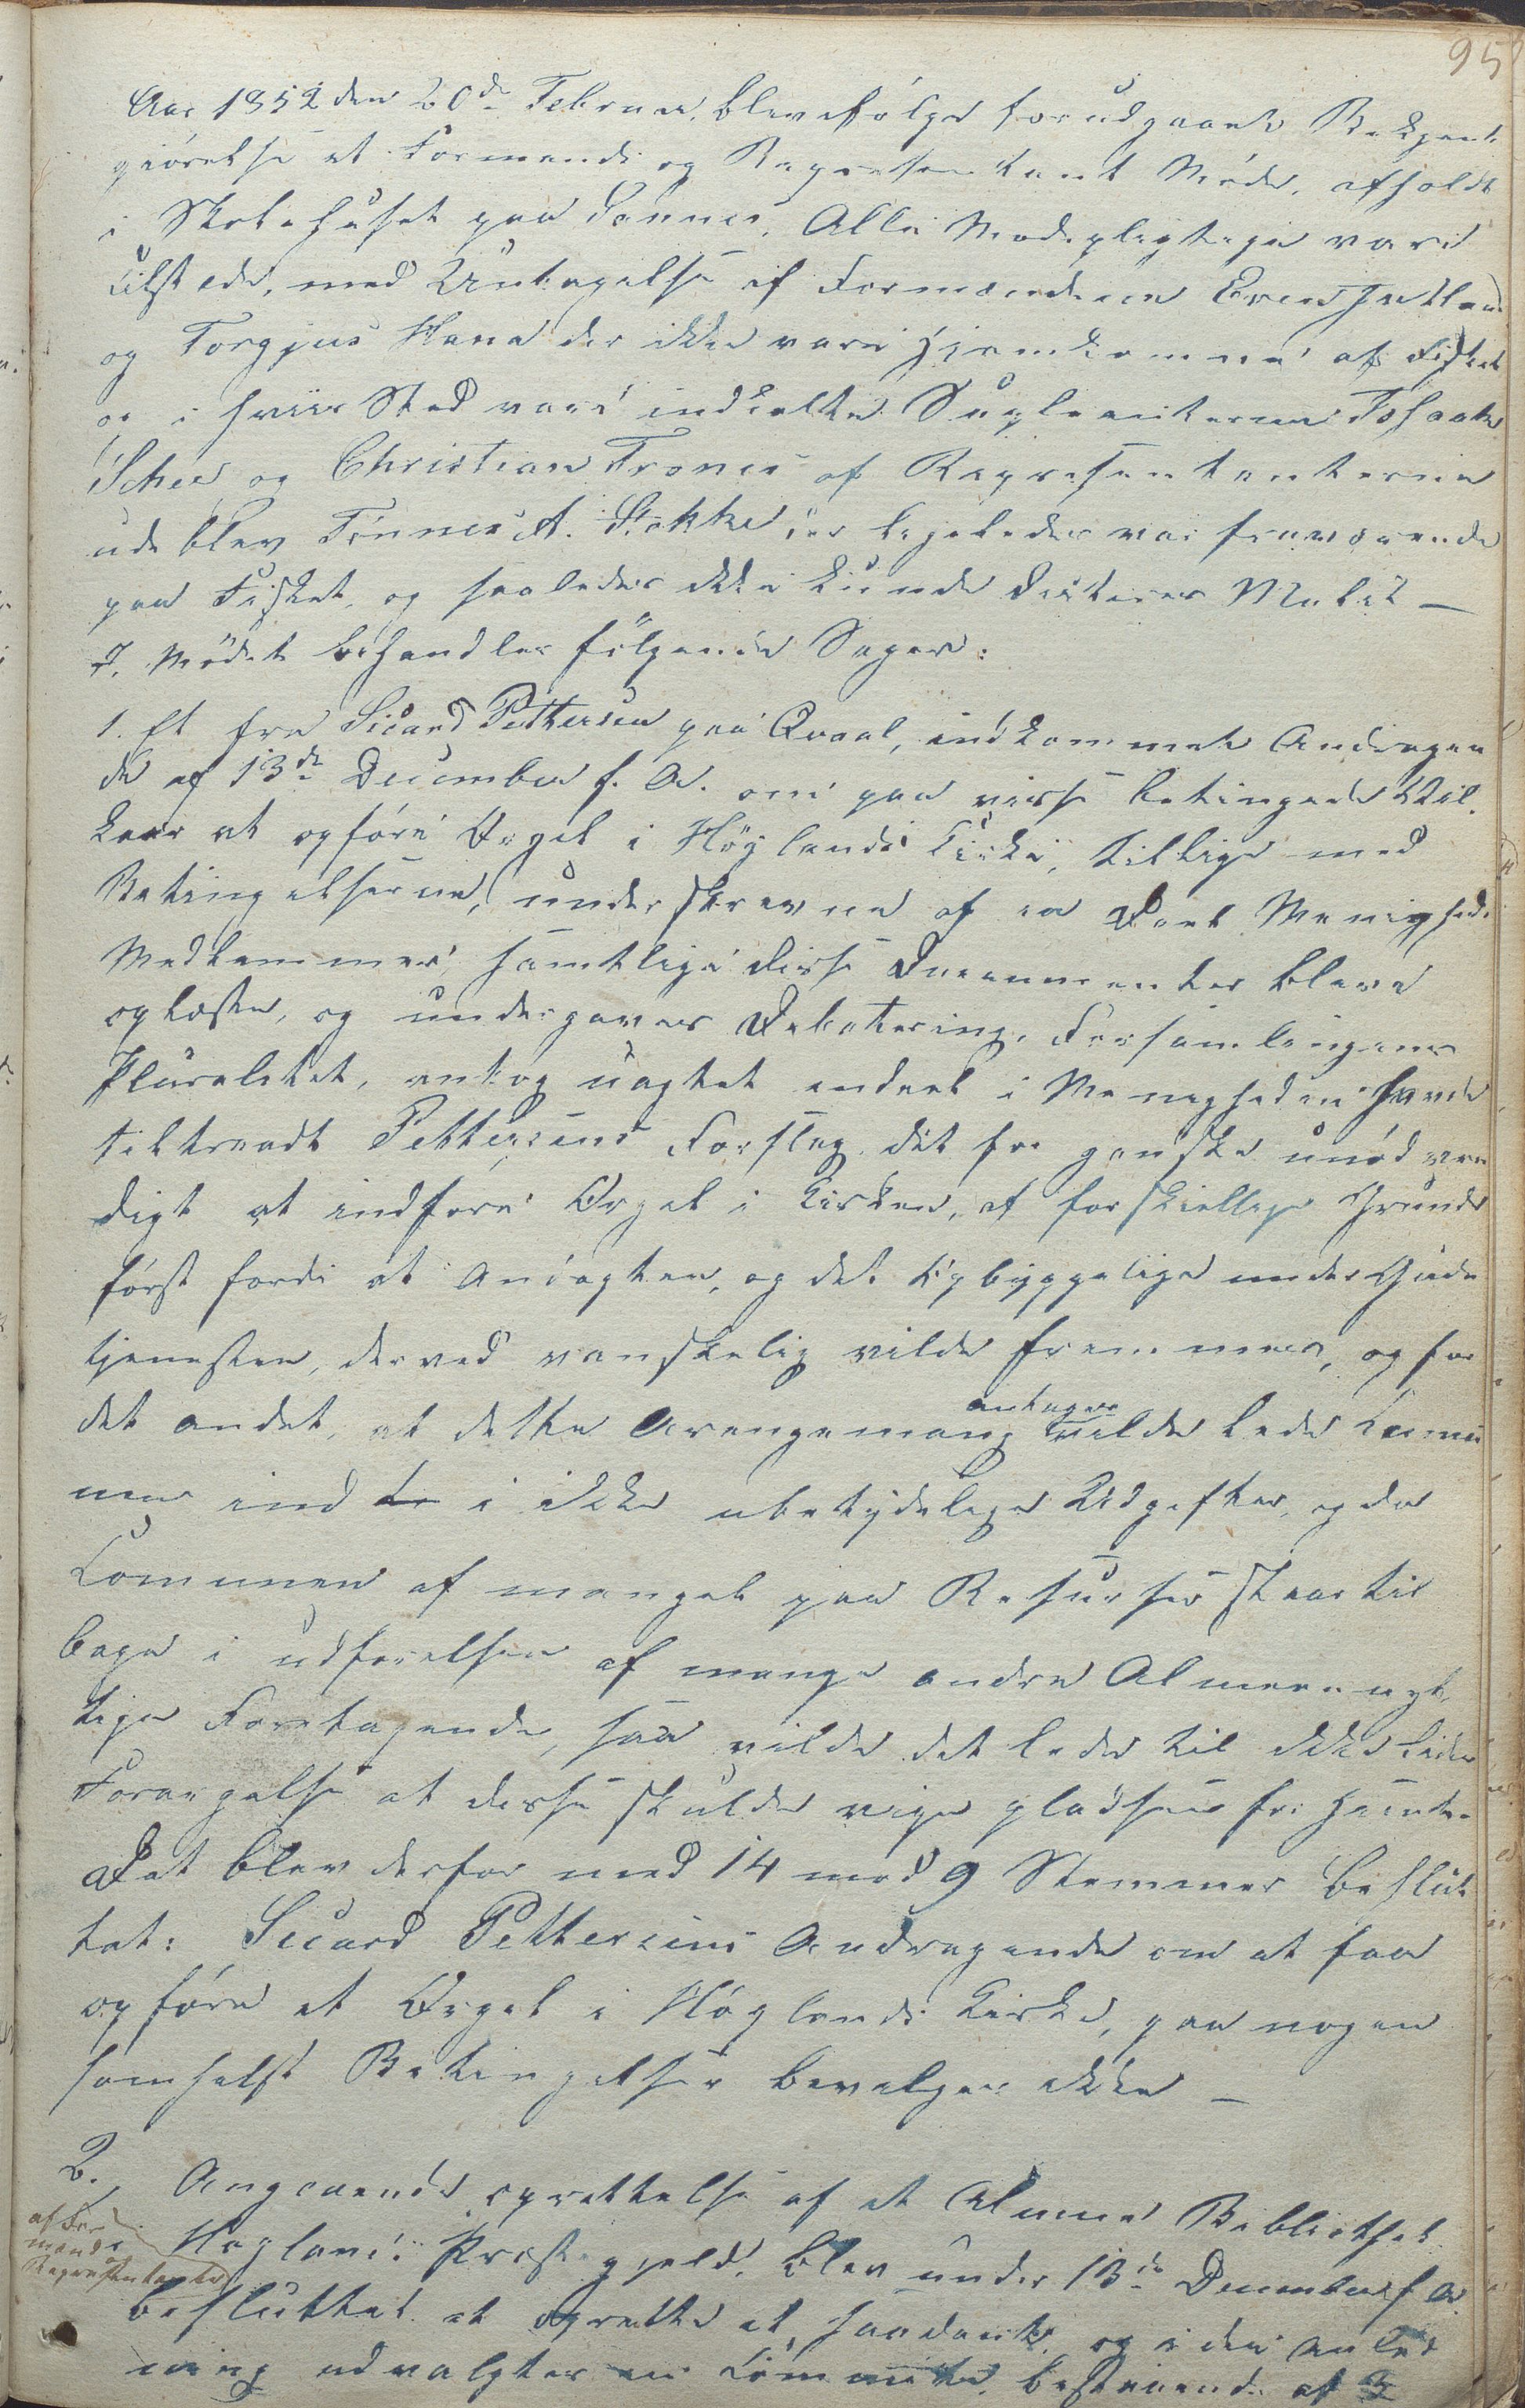 95
Aar 1852 den 20de Februar, blev ifølge forudgaaende Bekjent-
giörelse et Formands og Repræsentant Möde, afholdt
i Skolehuset paa Sannes. Alle Modepligtige vare
tilstæde, med Untagelse af Formændene Svend Jutland
og Torgjus Hana der ikke vare hjemkomne af Fisket
og i hvis Sted vare indkalte Suplianterne Tosaak
Schee og Christian Trones af Repræsentanterne
udeblev Tönnes A. Stokke, der ligeledes var fraværende
paa Fisket, og saaledes ikke kunde dicteres Mulct —
I Mödet behandles fölgende Sager:
1. Et fra Sicard Pettersen paa Qvaal, indkommet Andragen
de af 13de December f. A. om paa visse betingede Vil-
kaar at opföre Orgel i Höylands Kirke, tillige med
Betingelserne, underskrevne af en Deel Menigheds
Medlemmer, samtlige disse Documenter bleve
oplæste, og undergaves Debatering. Forsamlingens
Pluralitet, antog uagtet endeel i Menigheden havde
tiltraadt Pettersens Forslag, det for ganske unödven
digt at indföre Orgel i Kirken, af forskiellige Grunde
först fordi at Andagten, og det Opbyggelige under Guds-
tjenesten, derved vanskelig vilde fremmes, og for
det andet, at dette Arengemang antages vilde lede Comu
nen ind i ikke ubetydelige Udgifter, og da
Comunen af mangel paa Resurser staar til
bage i udförelsen af mange andre Almeennyt
tige Foretagende, saa vilde det lede til ikke liden
Forargelse at disse skulde vige pladsen for hiint.
Det blev derfor med 14 mod 9 Stemmer beslut
tet: Sicard Pettersens Andragende om at faa
opföre et Orgel i Höylands Kirke, paa nogen
somhelst Betingelser bevilges ikke —
2. Angaaende oprettelse af et Almue Bibliothek
i Höylands Præstegjeld, blev under 13de December f. A.
af For
mænd og
Repræsentanter
besluttet at oprette et saadant, og i den Anled
ning udvalgtes en Committe, bestaaende af 3